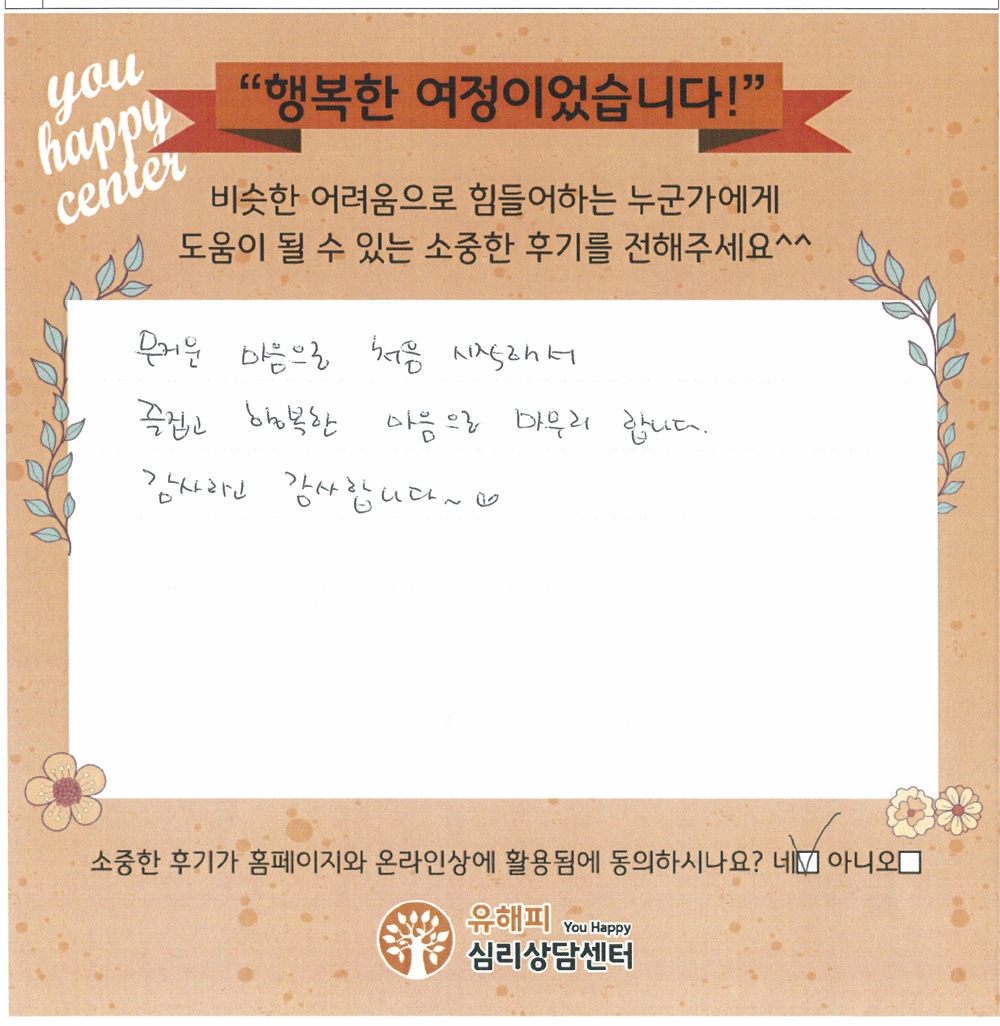 you
happy
center
“행복한 여정이었습니다!”
비슷한 어려움으로 힘들어하는 누군가에게
도움이 될 수 있는 소중한 후기를 전해주세요^^
무거운 마음으로 처음 시작해서
즐겁고 행복한 마음으로 마무리 합니다.
감사하고 감사합니다~
소중한 후기가 홈페이지와 온라인상에 활용됨에 동의하시나요? 네 아니오
유해피 You Happy
심리상담센터